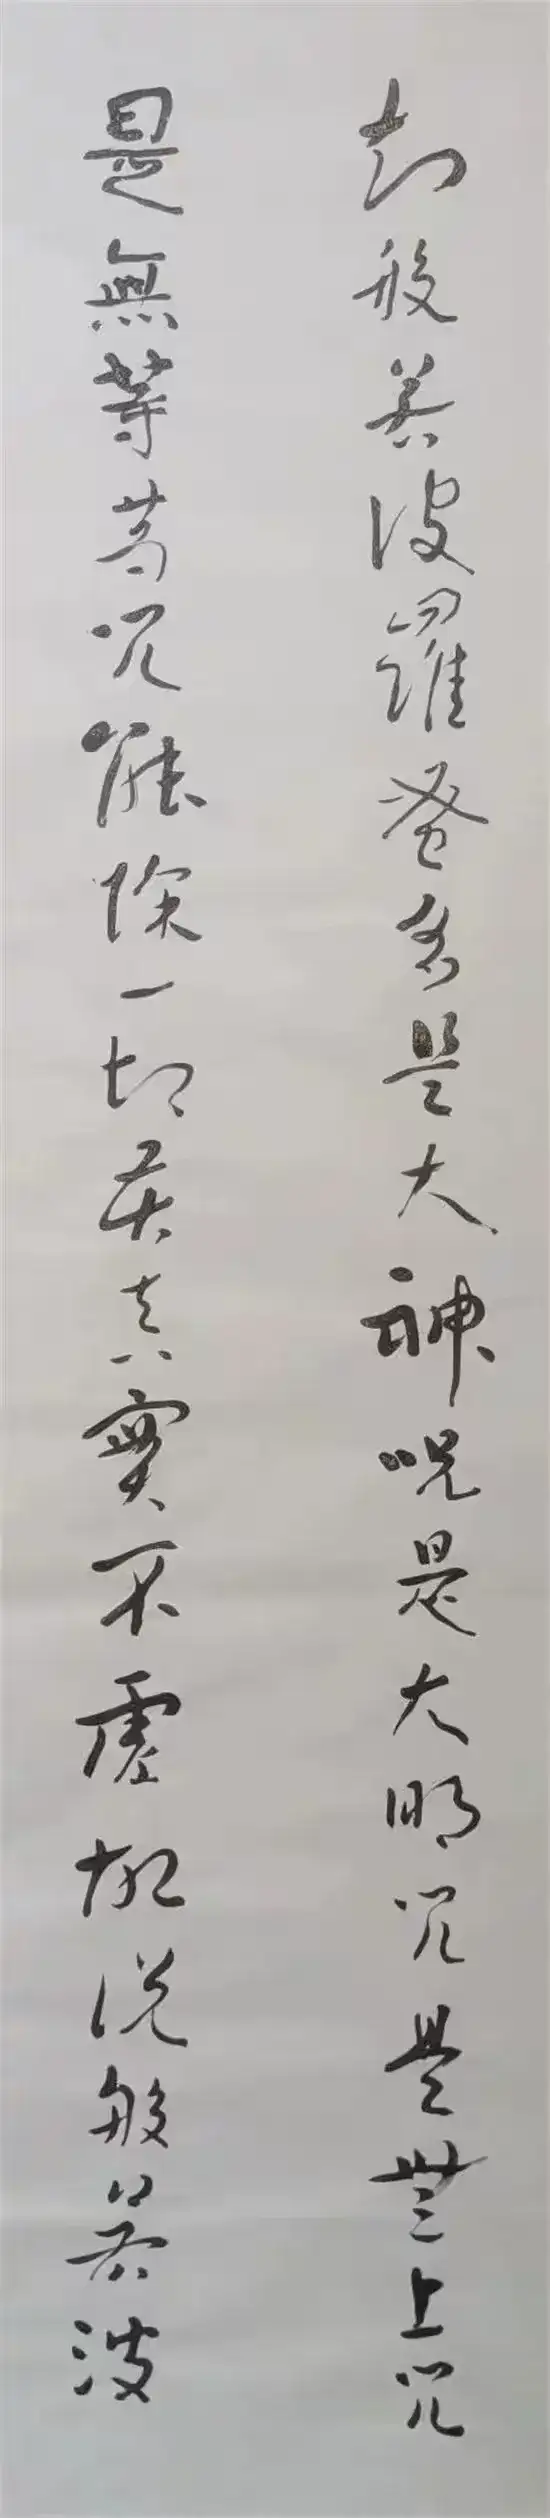 知般若波羅蜜多是大神呪是大明咒是無上咒
是無等等咒能除一切苦真實不虛故説般若波